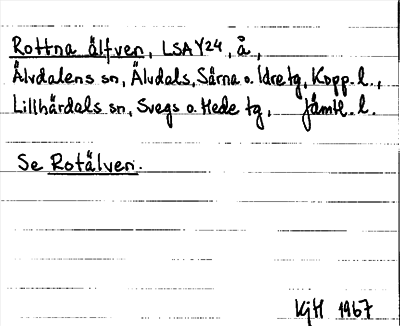 Rottna älfven, LSA Y24, å,
Älvdalens sn, Älvdals, Särna o. Idre tg, Kopp. l.,
Lillhärdals sn, Svegs o. Hede tg, Jämtl. l.
Se Rotälven.
KgH 1967